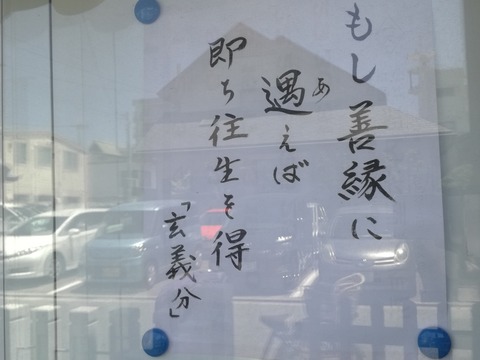 もし善縁に
遇えば
即ち往生を得
「玄義分」